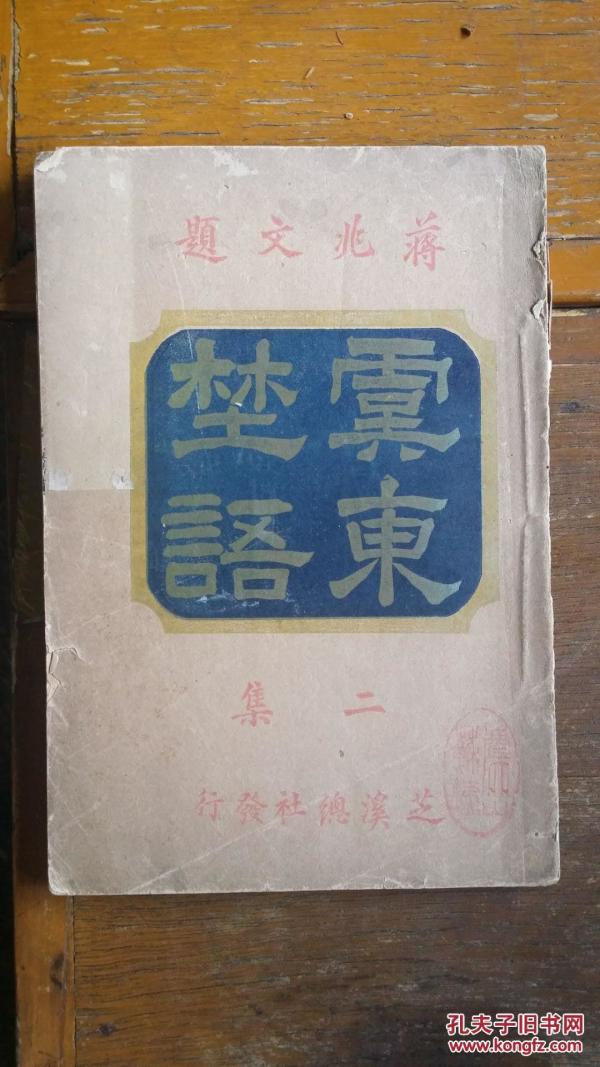 蔣兆文題
東
埜語
二集
芝溪總社發行
孔夫子旧书网
www.kongfz.com